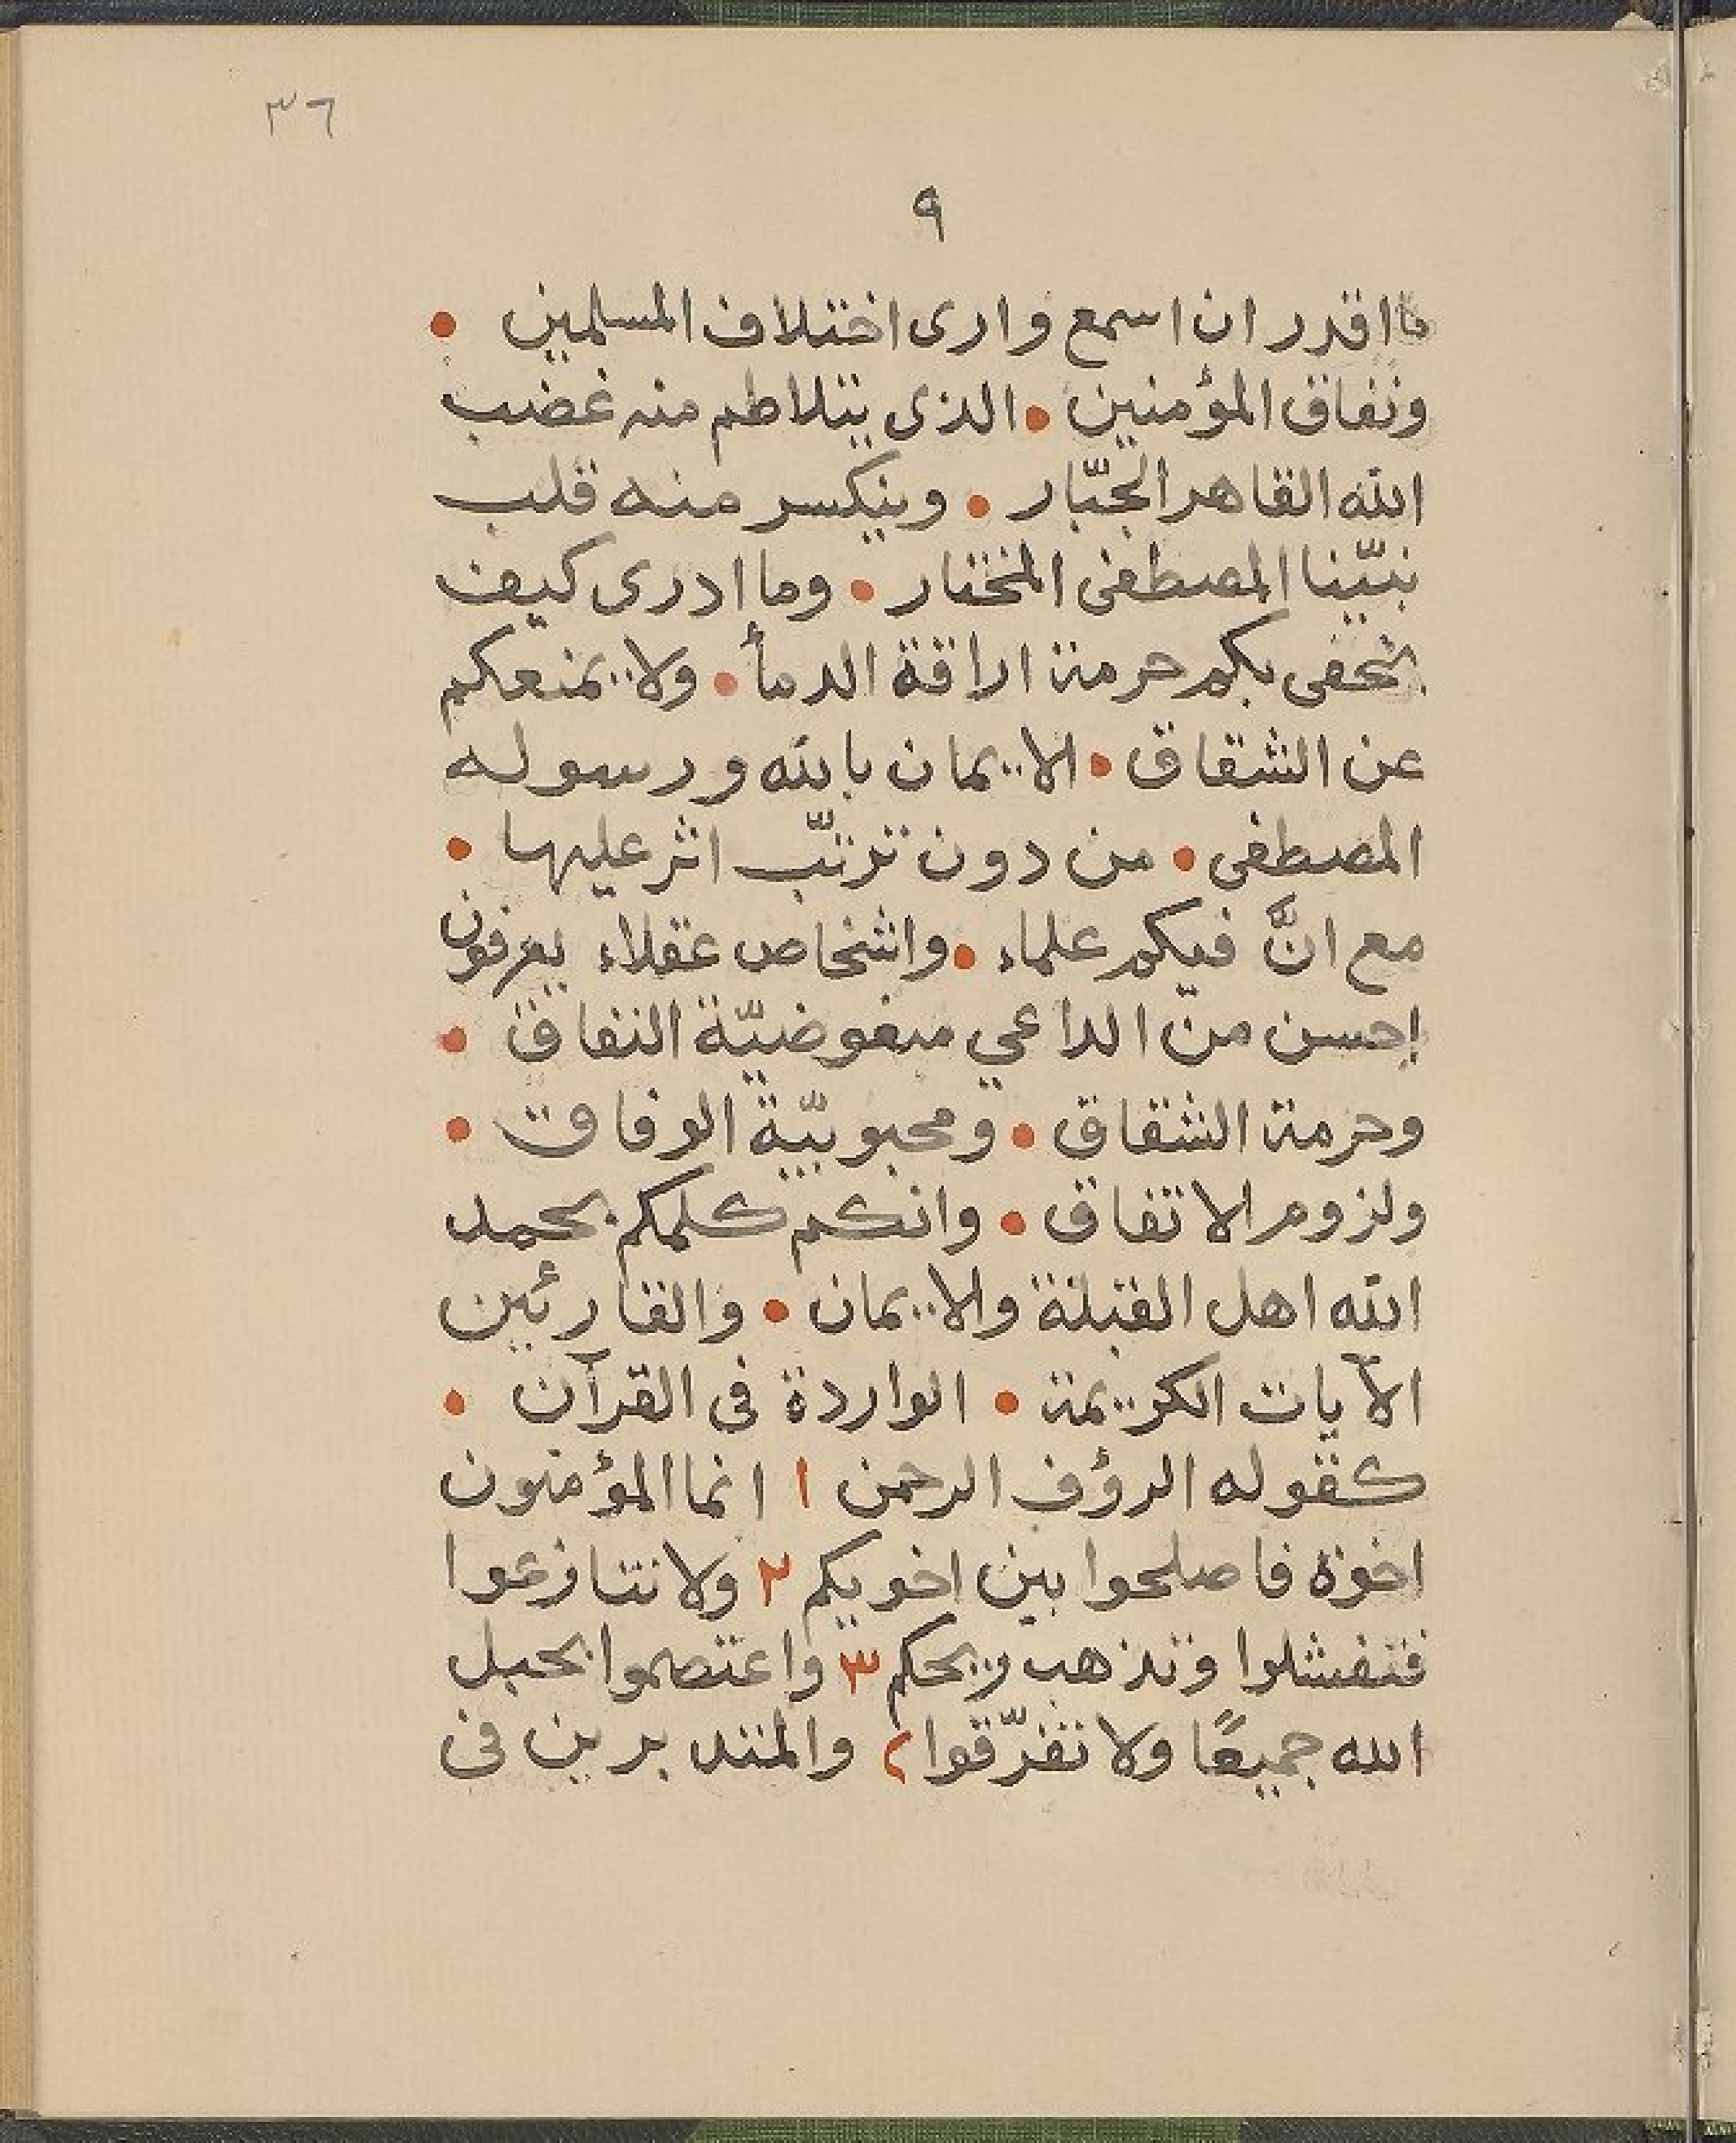 ٣٦
٩
ما اقدر ان اسمع وارى اختلاف المسلمين •
ونفاق المؤمنين • الذى يتلاطم منه غضب
الله القاهر الجبّار • وينكسر منه قلب
نبيّنا المصطفى المختار • وما ادرى كيف
تخفى بكم حرمة اراقة الدمأ • ولا يمنعكم
عن الشقاق • الايمان بالله ورسوله
المصطفى • من دون ترتّب اثر عليها •
مع انَّ فيكم علماء • واشخاص عقلاء يعرفون
احسن من الداعي مبغوضيّة النفاق •
وحرمة الشقاق • ومحبوبيّة الوفاق •
ولزوم الاتفاق • وانكم كلمكم بحمد
الله اهل القبلة والايمان • والقارئين
الآيات الكريمة • الواردة فى القرآن •
كقوله الرؤف الرحمن ١ انما المؤمنون
اخوة فاصلحوا بين اخويكم ٢ ولا تتنازعوا
فتفشلوا وتذهب ريحكم ٣ واعتصموا بحبل
الله جميعًا ولا تفرّقوا والمتدبرين فى